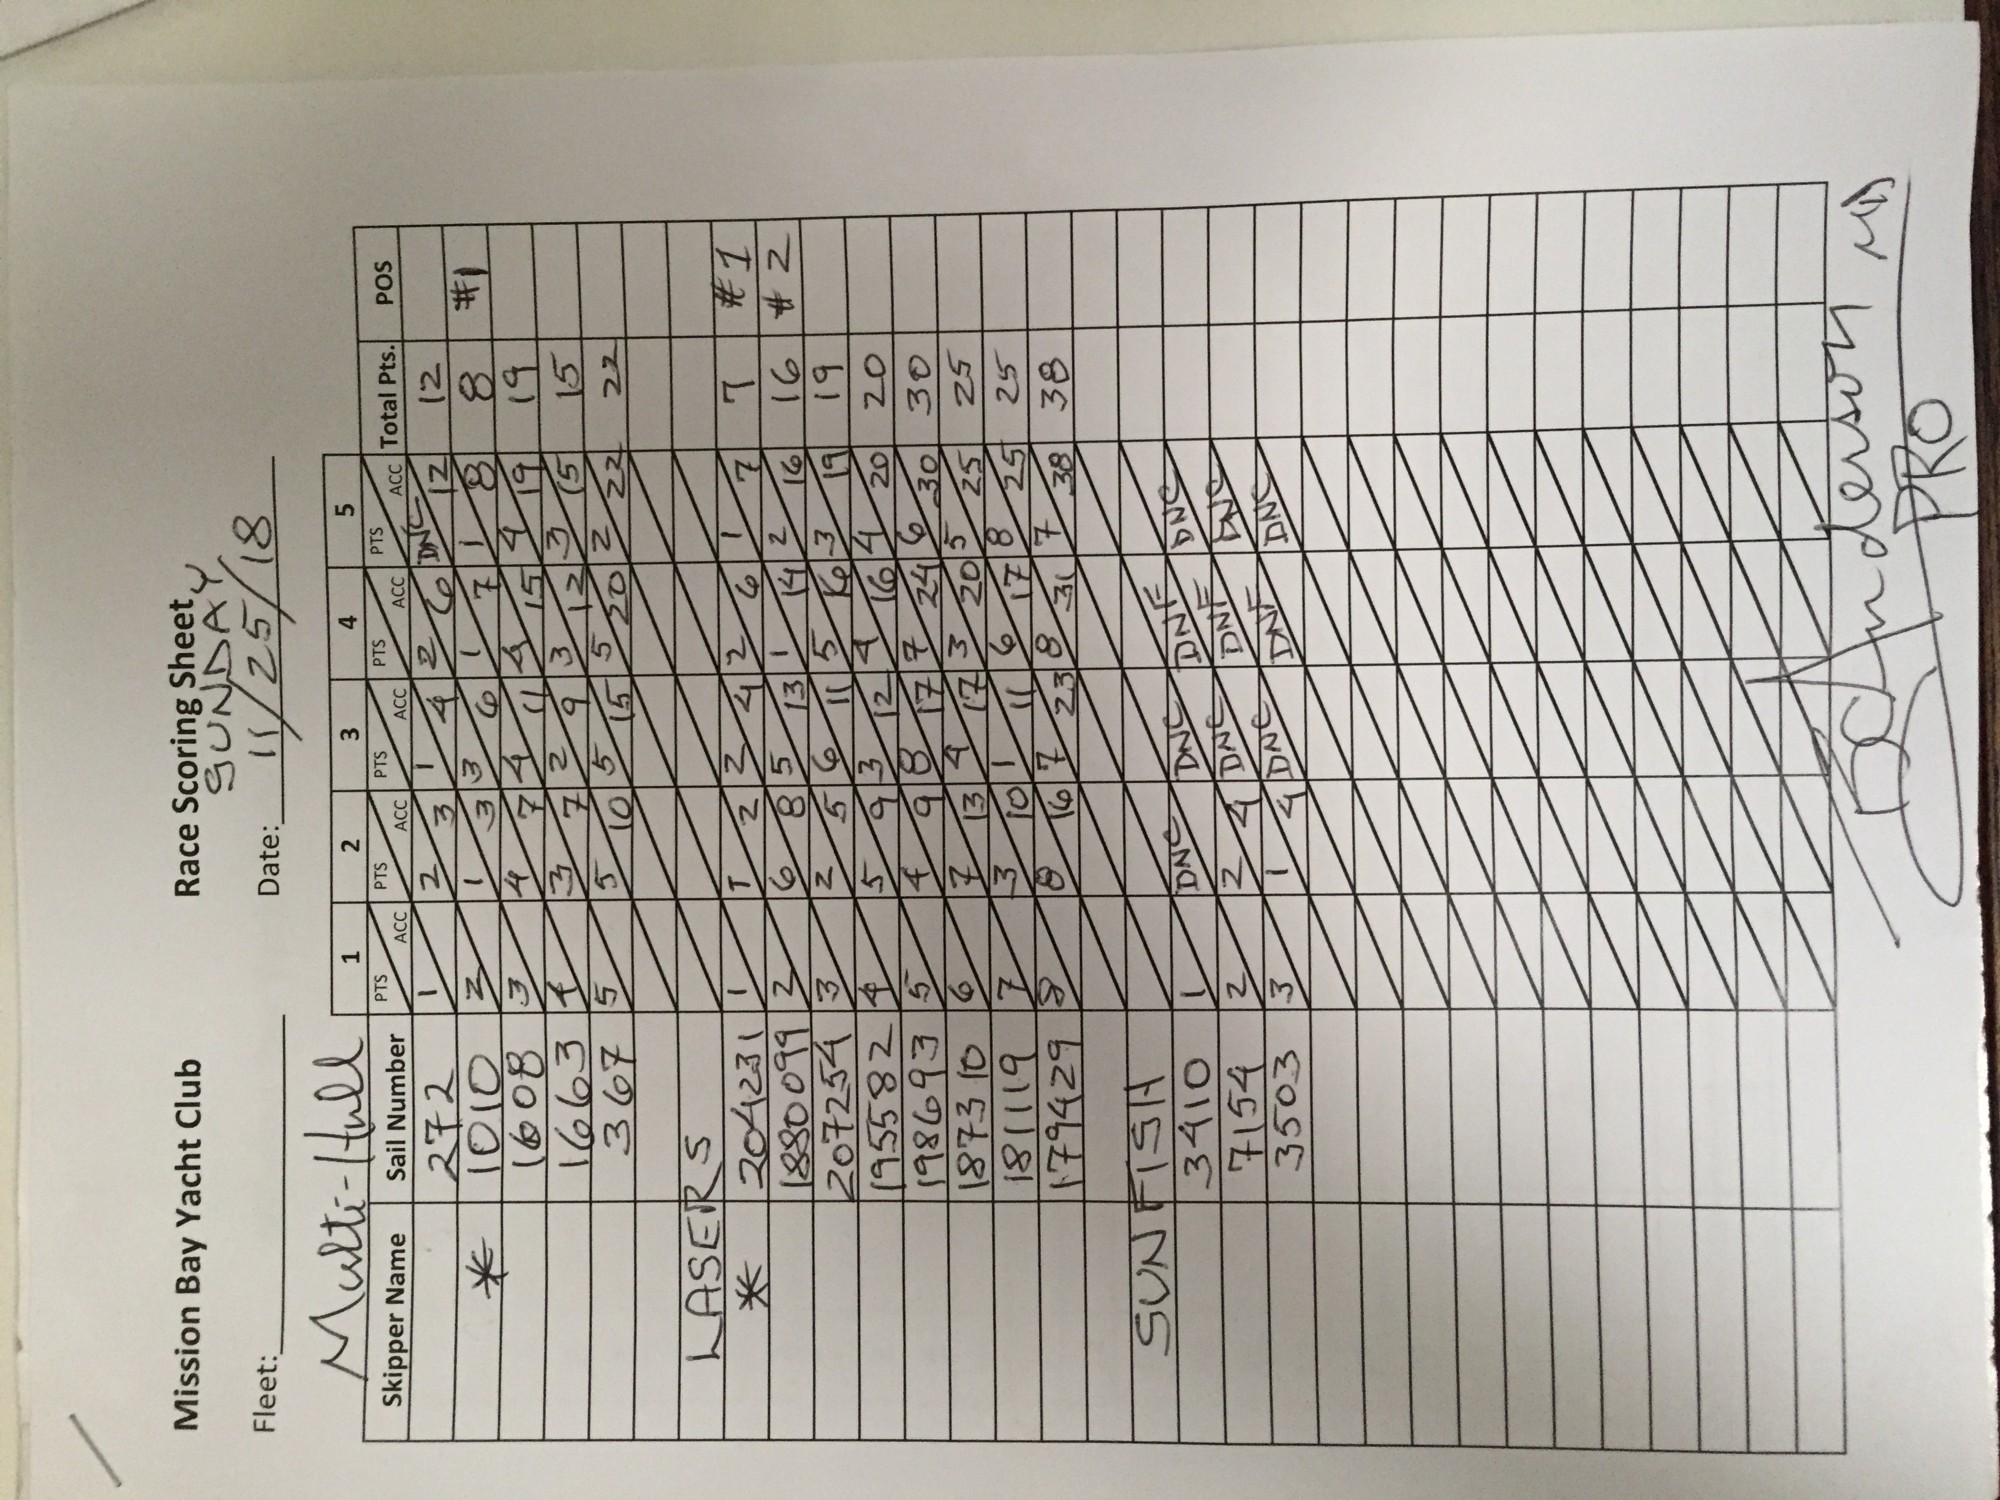 Mission Bay Yacht Club Race Scoring Sheet
SUNDAY
Fleet: Date: 11/25/18
Multi-Hull
1 2 3 4 5
Skipper Name Sail Number PTS ACC PTS ACC PTS ACC PTS ACC PTS ACC Total Pts. POS
272 1 2 3 1 4 2 6 DNC 12 12
* 1010 2 1 3 3 6 1 7 1 8 8 #1
1608 3 4 7 4 11 4 15 4 19 19
1663 4 3 7 2 9 3 12 3 15 15
367 5 5 10 5 15 5 20 2 22 22
LASERS
* 204231 1 1 2 2 4 2 6 1 7 7 #1
1880099 2 6 8 5 13 1 14 2 16 16 #2
207254 3 2 5 6 11 5 16 3 19 19
195582 4 5 9 3 12 4 16 4 20 20
198693 5 4 9 8 17 7 24 6 30 30
187310 6 7 13 4 17 3 20 5 25 25
181119 7 3 10 1 11 6 17 8 25 25
179429 8 8 16 7 23 8 31 7 38 38
SUNFISH
3410 1 DNC DNC DNF DNC
7154 2 2 4 DNC DNF DNC
3503 3 1 4 DNC DNF DNC
Anderson MD
PRO